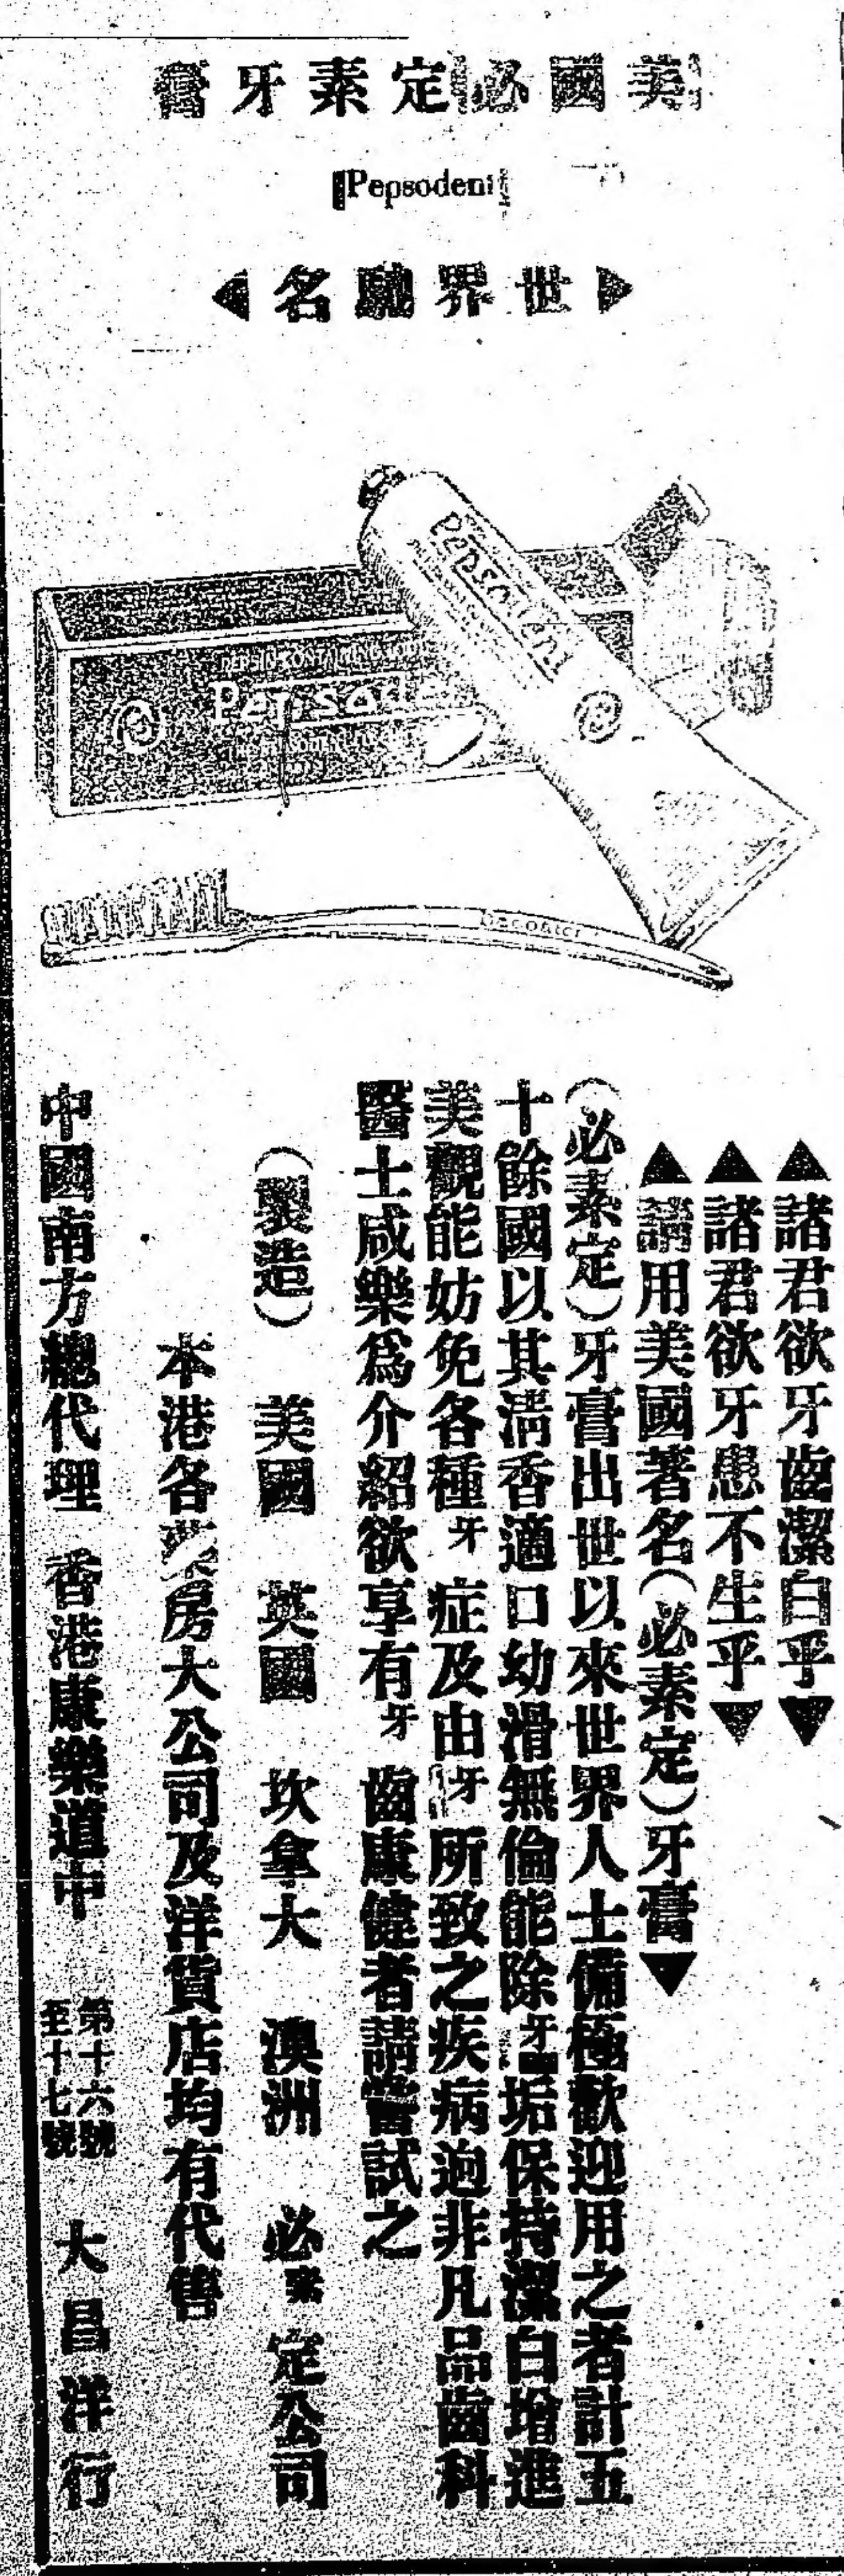 美國必定素牙膏
Pepsodent
▶世界馳名◀
Pepsodent
Pepsode
▲諸君欲牙齒潔白乎▼
▲諸君欲牙患不生乎▼
▲請用美國著名(必素定)牙膏▼
(必素定)牙膏出世以來世界人士備極歡迎用之者計五
十餘國以其淸香適口幼滑無倫能除牙垢保持潔白增進
美觀能妨免各種牙症及由牙所致之疾病迥非凡品齒科
醫士咸樂爲介紹欲享有牙齒康健者請嘗試之
(製造) 美國 英國 坎拿大 澳洲 必素定公司
本港各藥房大公司及洋貨店均有代售
中國南方總代理 香港康樂道中 第十六號至十七號 大昌洋行